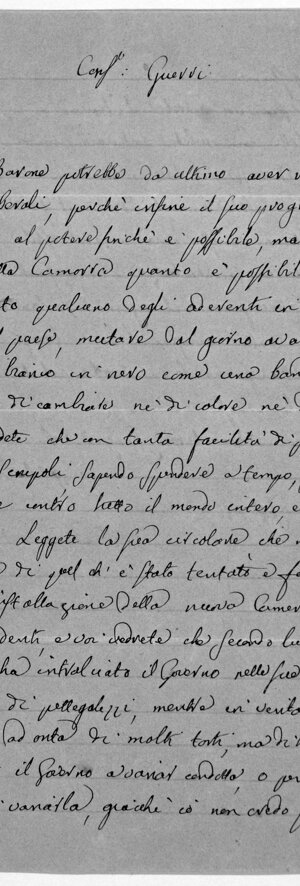 Conf.te: Guerri
Barone potrebbe da ultimo aver
liberali, perchè infine il suo prog
al potere finchè è possibile, ma
Camorra quanto è possibil
qualcuno degli aderenti in
paese, mutare dal giorno
bianco in nero come una
di cambiare nè di colore nè
che con tanta facilità di
scrupoli sapendo spendere a tempo,
contro tutto il mondo intero e
Leggete la sua circolare che
di quel ch'è stato tentato e
installazione della nuova Camer
denti, e voi vedrete che secondo lu
ha intralciato il Governo nelle sue
di pettegolezzi, mentre in verità
ad onta di molti torti, ma di
il Governo a variar condotta, o per
variarla, giacchè ciò non credo